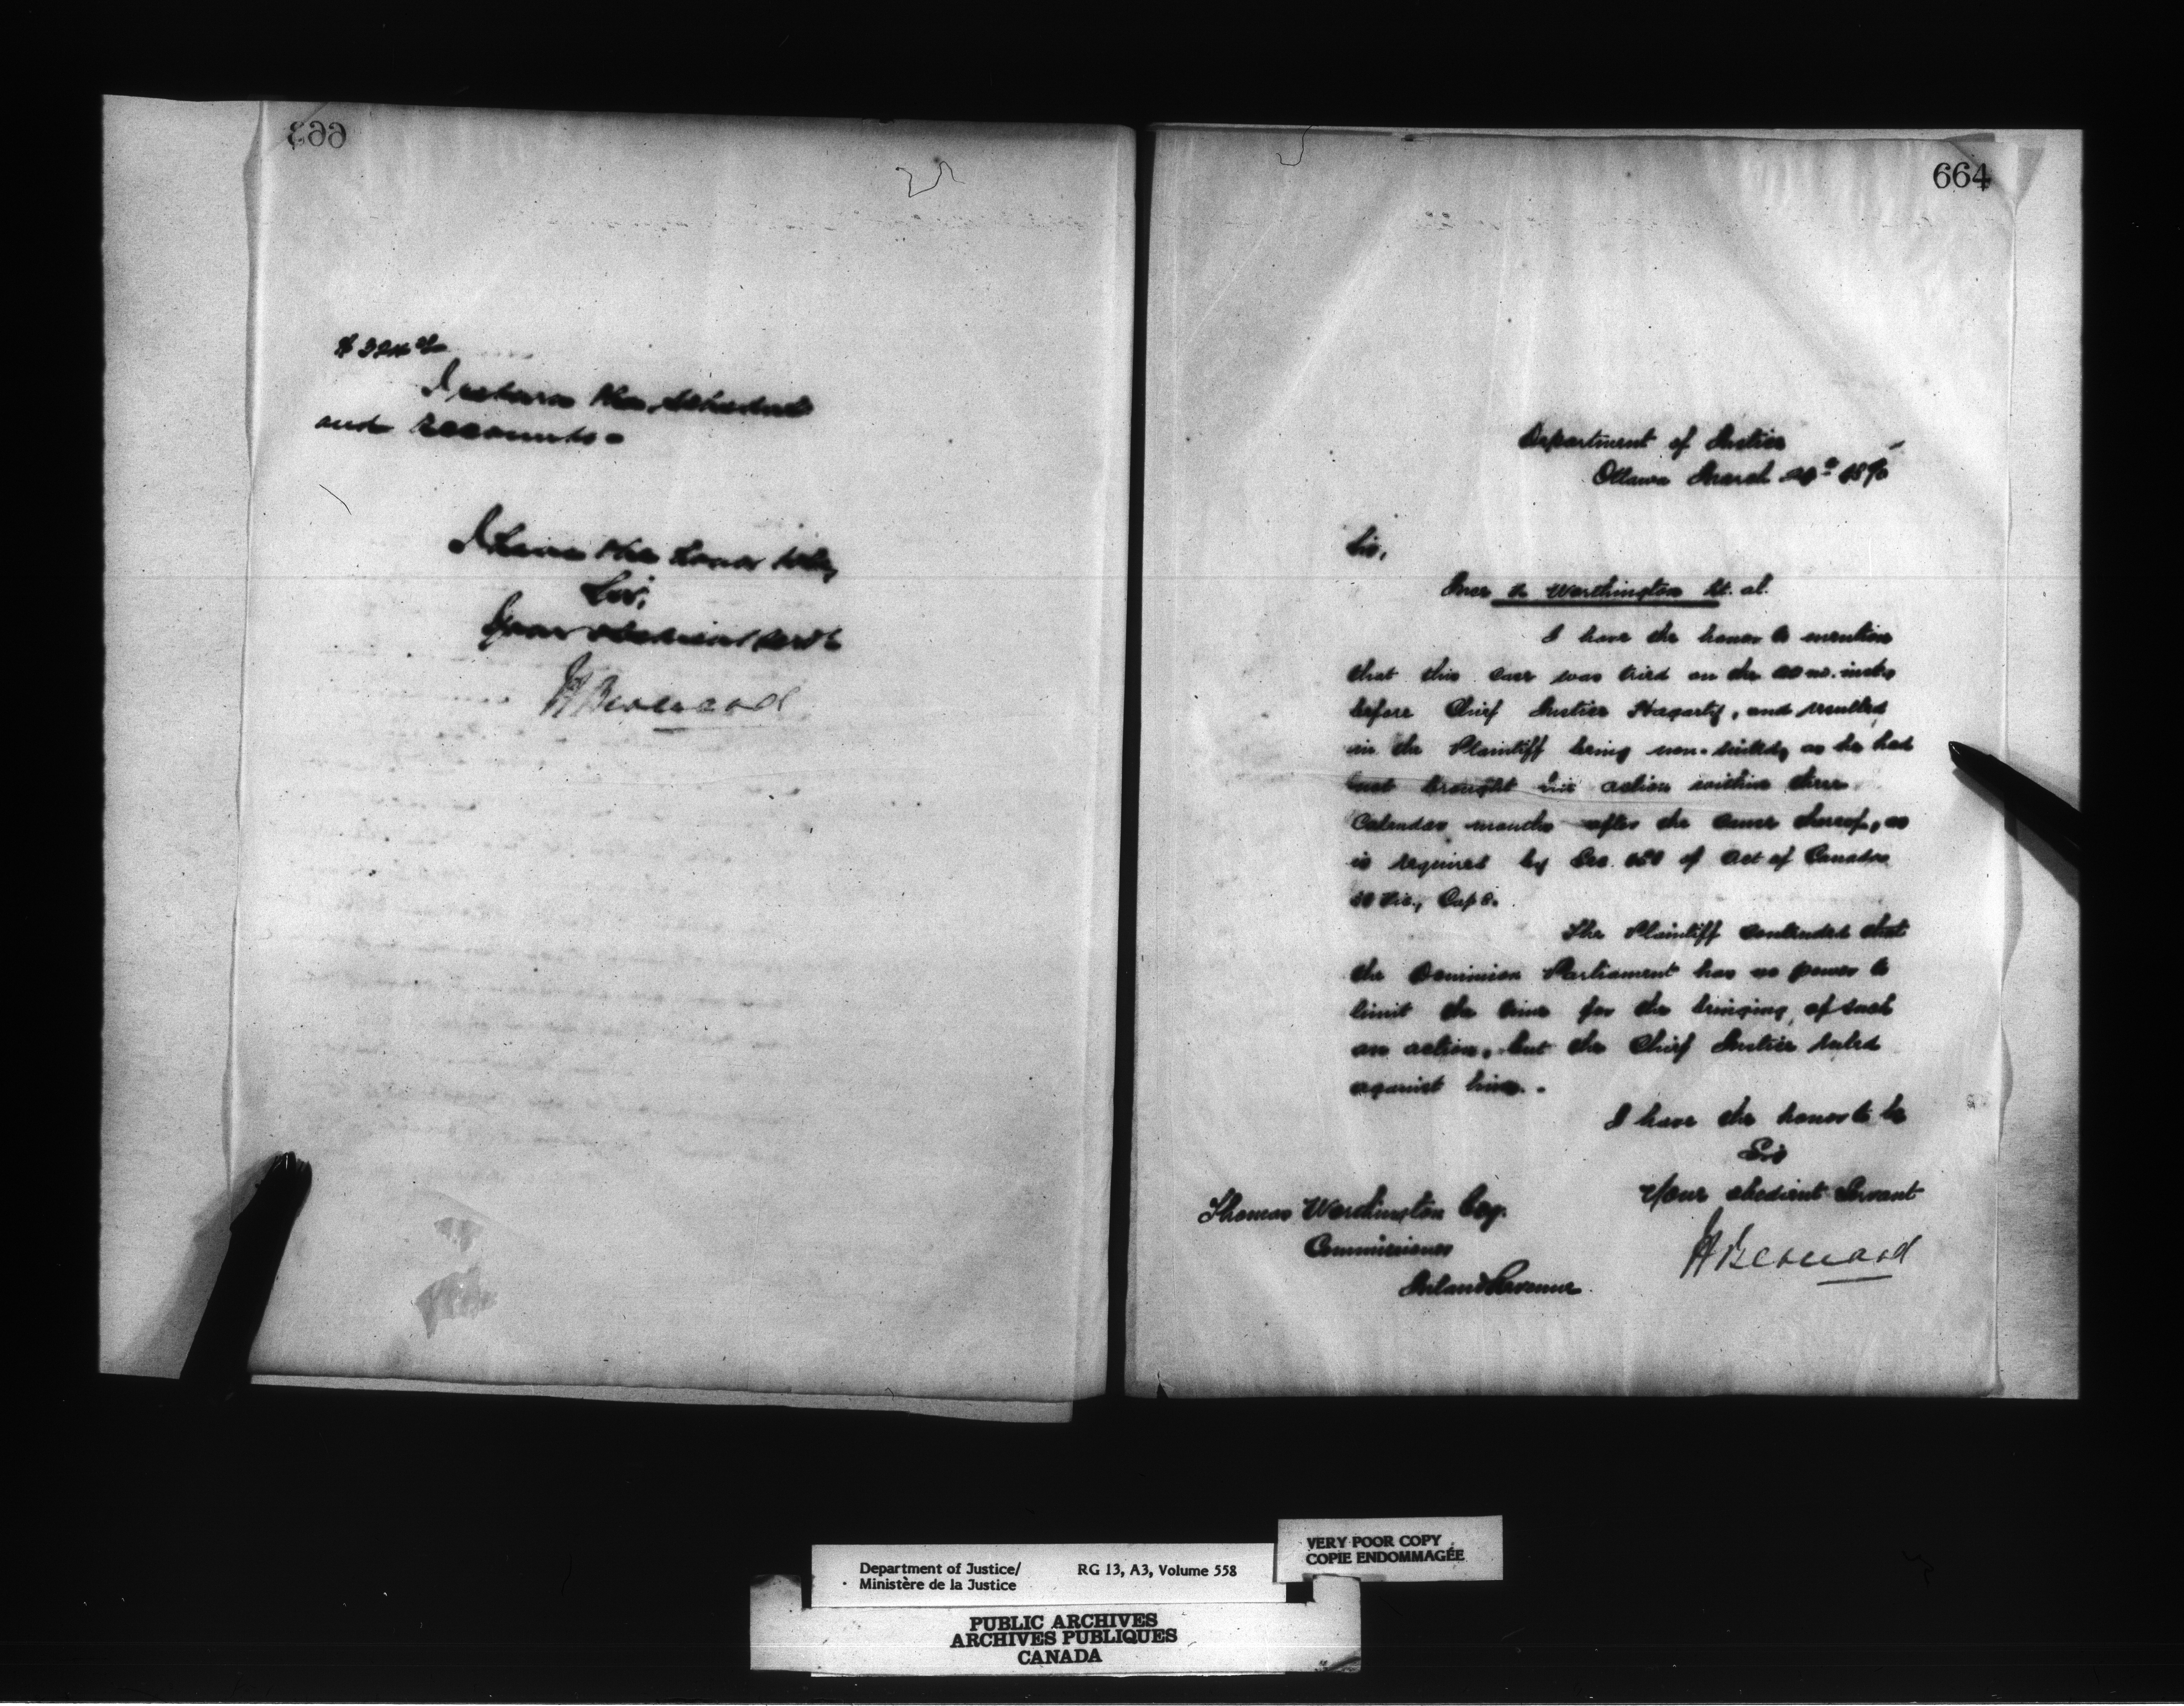 663
I return the schedule
and accounts.
I have the honor to be,
Sir,
Your obedient servt
H Bernard
664
Department of Justice
Ottawa March
Sir,
vs Worthington et. al.
I have the honor to mention
that this case was tried on the inst,
before Chief Justice Hagarty, and resulted
in the Plaintiff being non-suited, as he had
not brought his action within three
Calendar months after the cause thereof, as
is required by Sec. of Act of Canada
Vic., Cap 8.
The Plaintiff contended that
the Dominion Parliament has no power to
limit the time for the bringing of such
an action, but the Chief Justice ruled
against him.
I have the honor to be
Sir
Your obedient Servant
H Bernard
Thomas Worthington Esq.
Commissioner
Inland Revenue
Department of Justice/
Ministère de la Justice
RG 13, A3, Volume 558
VERY POOR COPY
COPIE ENDOMMAGÉE
PUBLIC ARCHIVES
ARCHIVES PUBLIQUES
CANADA